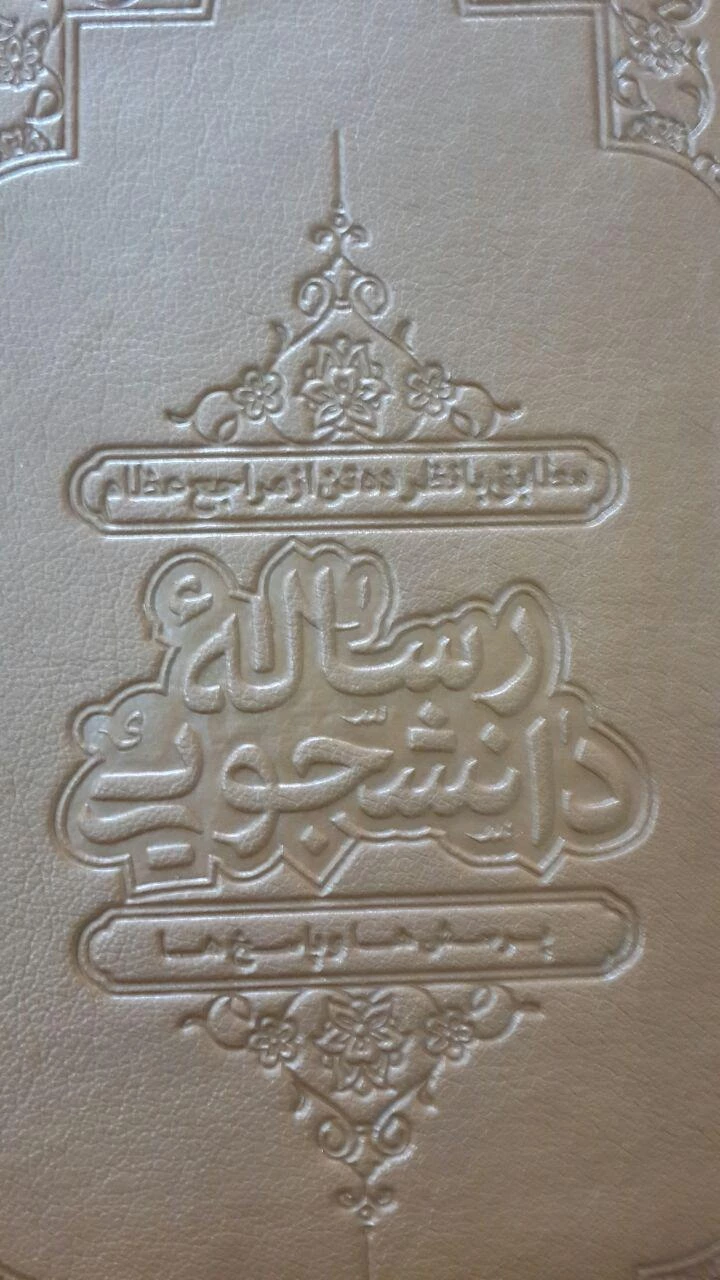 مطابق با نظر ده تن از مراجع عظام
رسالهٔ
دانشجویی
پرسش ها و پاسخ ها